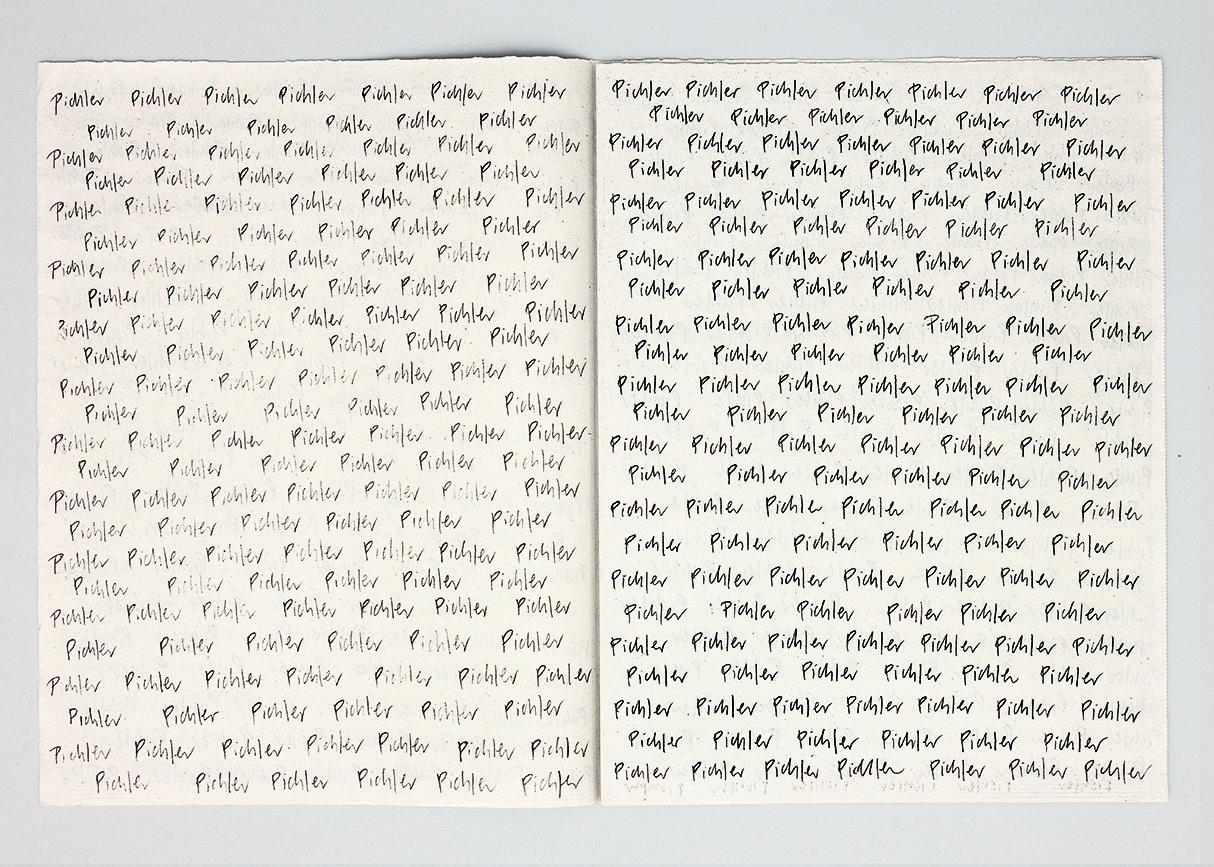 Pichler Pichler Pichler Pichler Pichler Pichler Pichler
Pichler Pichler Pichler Pichler Pichler Pichler
Pichler Pichler Pichler Pichler Pichler Pichler Pichler
Pichler Pichler Pichler Pichler Pichler Pichler
Pichler Pichler Pichler Pichler Pichler Pichler Pichler
Pichler Pichler Pichler Pichler Pichler Pichler
Pichler Pichler Pichler Pichler Pichler Pichler Pichler
Pichler Pichler Pichler Pichler Pichler Pichler
3ichler Pichler Pichler Pichler Pichler Pichler Pichler
Pichler Pichler Pichler Pichler Pichler Pichler
Pichler Pichler Pichler Pichler Pichler Pichler Pichler
Pichler Pichler Pichler Pichler Pichler Pichler
Pichler Pichler Pichler Pichler Pichler Pichler Pichler
Pichler Pichler Pichler Pichler Pichler Pichler
Pichler Pichler Pichler Pichler Pichler Pichler Pichler
Pichler Pichler Pichler Pichler Pichler Pichler
Pichler Pichler Pichler Pichler Pichler Pichler Pichler
Pichler Pichler Pichler Pichler Pichler Pichler
Pichler Pichler Pichler Pichler Pichler Pichler Pichler
Pichler Pichler Pichler Pichler Pichler Pichler
Pichler Pichler Pichler Pichler Pichler Pichler Pichler
Pichler Pichler Pichler Pichler Pichler Pichler
Pichler Pichler Pichler Pichler Pichler Pichler Pichler
Pichler Pichler Pichler Pichler Pichler Pichler
Pichler Pichler Pichler Pichler Pichler Pichler Pichler
Pichler Pichler Pichler Pichler Pichler Pichler
Pichler Pichler Pichler Pichler Pichler Pichler Pichler
Pichler Pichler Pichler Pichler Pichler Pichler
Pichler Pichler Pichler Pichler Pichler Pichler Pichler
Pichler Pichler Pichler Pichler Pichler Pichler
Pichler Pichler Pichler Pichler Pichler Pichler Pichler
Pichler Pichler Pichler Pichler Pichler Pichler
Pichler Pichler Pichler Pichler Pichler Pichler Pichler
Pichler Pichler Pichler Pichler Pichler Pichler
Pichler Pichler Pichler Pichler Pichler Pichler Pichler
Pichler Pichler Pichler Pichler Pichler Pichler
Pichler Pichler Pichler Pichler Pichler Pichler Pichler
Pichler Pichler Pichler Pichler Pichler Pichler
Pichler Pichler Pichler Pichler Pichler Pichler Pichler
Pichler Pichler Pichler Pichler Pichler Pichler
Pichler Pichler Pichler Pichler Pichler Pichler Pichler
Pichler Pichler Pichler Pichler Pichler Pichler
Pichler Pichler Pichler Pichler Pichler Pichler Pichler
Pichler Pichler Pichler Pichler Pichler Pichler
Pichler Pichler Pichler Pichler Pichler Pichler Pichler
Pichler Pichler Pichler Pichler Pichler Pichler
Pichler Pichler Pichler Pichler Pichler Pichler Pichler